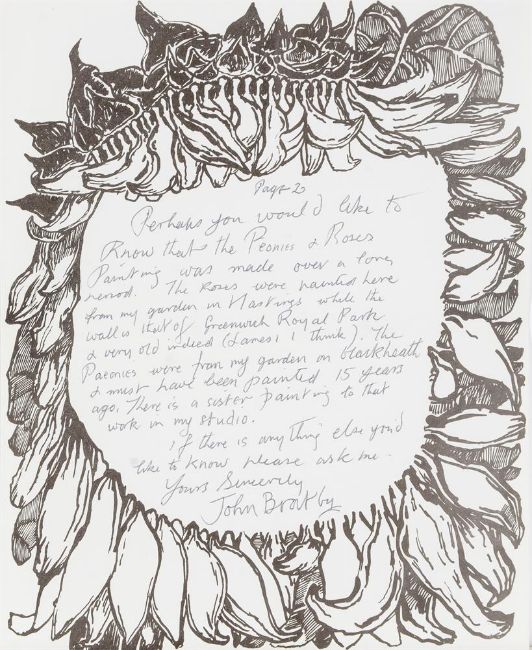 Page 2
Perhaps you would like to
Know that the Peonies & Roses
Painting was made over a long
period. The Roses were painted here
from my garden in Hastings while the
wall is that of Greenwich Royal Park
& very old indeed (James I I think). The
Paeonies were from my garden on blackheath
& must have been painted 15 years
ago. There is a sister painting to that
work in my studio.
if there is anything else you'd
like to know please ask me.
Yours Sincerely
John Bratby